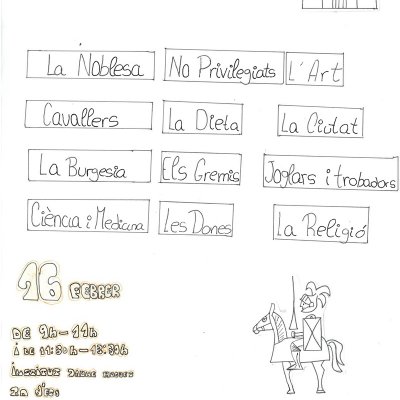 La Noblesa
No Privilegiats
L'Art
Cavallers
La Dieta
La Ciutat
La Burgesia
Els Gremis
Joglars i trobadors
Ciència i Medicina
Les Dones
La Religió
16 FEBRER
DE 9h-11h
i DE 11:30h-13:30h
institut JAUME HUGUET
2n d'ESO